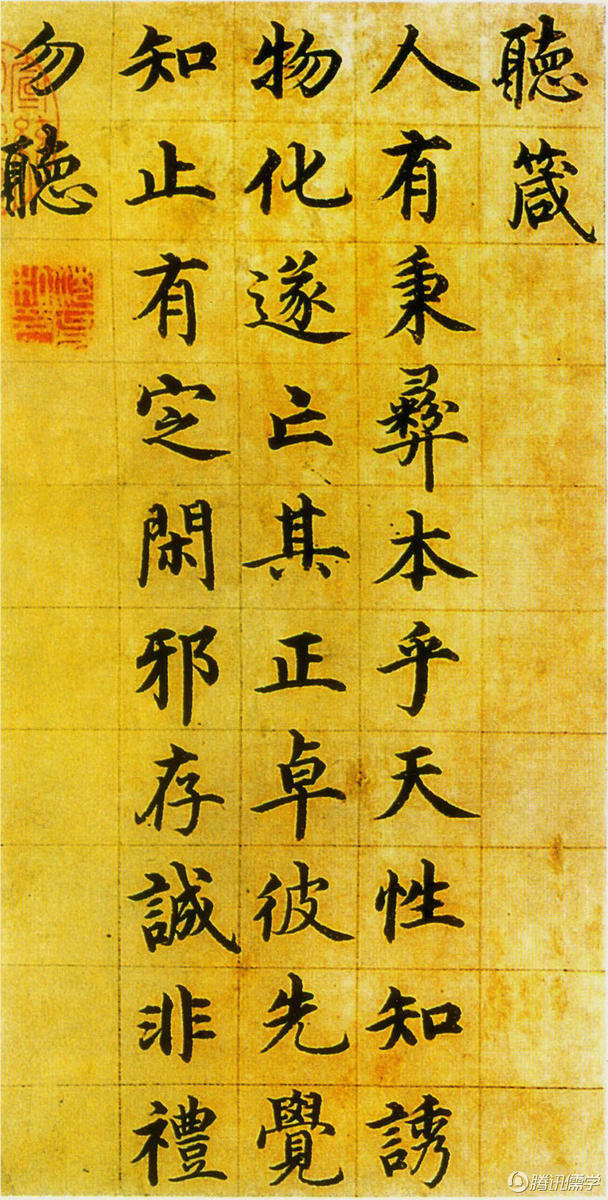 聽箴
人有秉彝本乎天性知誘
物化遂亡其正卓彼先覺
知止有定閑邪存誠非禮
勿聽
腾讯儒学